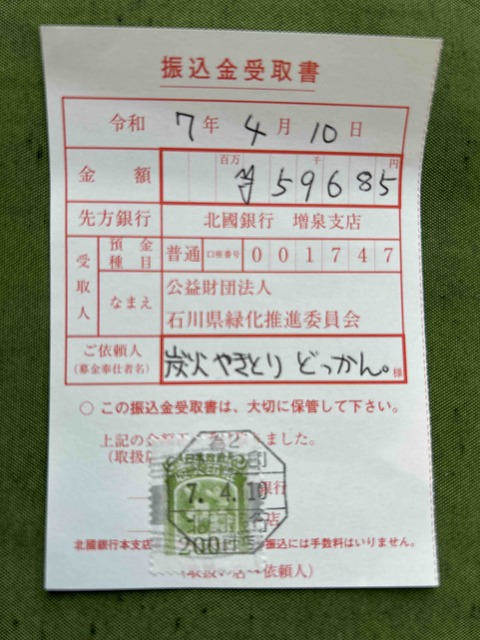 振込金受取書
令和 7年 4月 10日
金額 百万 千 円 ¥59685
先方銀行 北國銀行 増泉支店
受取人 預金種目 普通 口座番号 001747
なまえ 公益財団法人
石川県緑化推進委員会
ご依頼人 炭火やきとり どっかん。様
(募金奉仕者名)
○ この振込金受取書は、大切に保管して下さい。
上記の金額 ました。
(取扱
銀行
7.4.10
店
北國銀行本支店 振込には手数料はいりません。
200円
依頼人)